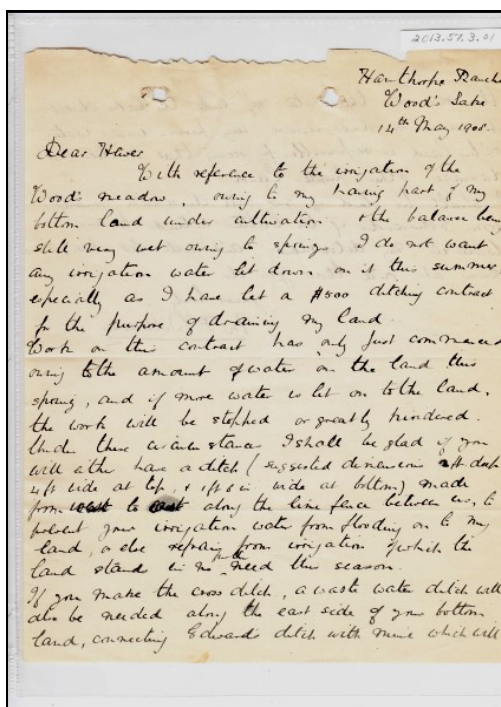 2013.57.3.01
Hawthorpe Ranche
Wood's Lake
14th May 1908.
Dear Hawes
With reference to the irrigation of the
Wood's meadow, owing to my having part of my
bottom land under cultivation & the balance being
still very wet owing to springs I do not want
any irrigation water let down on it this summer
especially as I have let a $500 ditching contract
for the purpose of draining my land.
Work on this contract has only just commenced
owing to the amount of water on the land this
spring, and if more water is let on to the land,
the work will be stopped or greatly hindered.
Under these circumstances I shall be glad if you
will either have a ditch (suggested dimensions 2ft deep
4ft wide at top, & 1ft 6 in wide at bottom) made
from to along the line fence between us, to
prevent your irrigation water from flooding on to my
land, or else refrain from irrigation of which the
land stands in no need this season.
If you make the cross ditch, a waste water ditch will
also be needed along the east side of your bottom
land, connecting Edwards ditch with mine which will